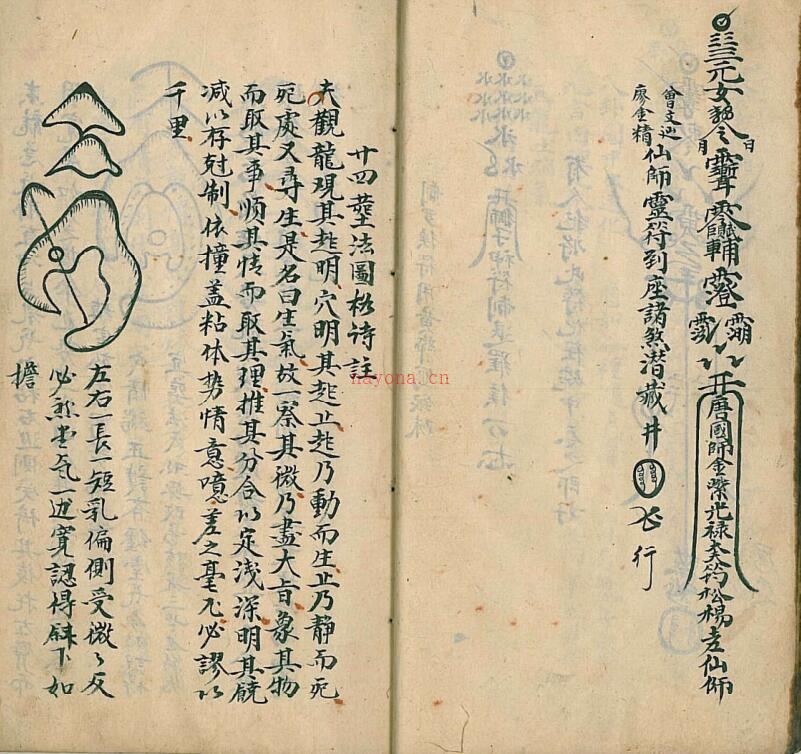 三元女
令
日
月
輔
唐國師金紫光禄大夫筠松楊老仙師
曾文
廖金精
仙師靈符到座諸煞潛藏井
行
廿四塟法圖格诗註
夫觀龍現其起明穴明其起止起乃動而生止乃静而死
死處又尋生是名曰生氣故一察其微乃盡大旨象其物
而取其事順其情而取其理推其分合以定浅深明其饒
减以存尅制依撞盖粘体势情意噫差之毫 必謬以
千里
左右一長一短乳偏側受微〻反
必 气一边寬認得 下如
擔
nayona.cn